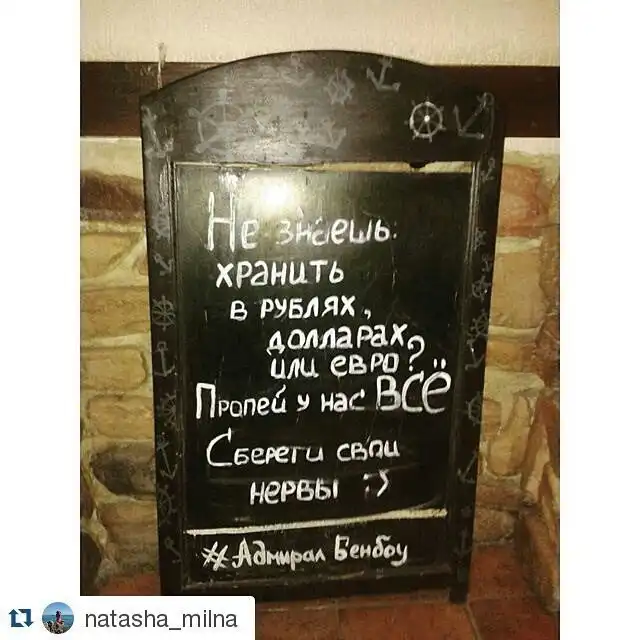 Не знаешь:
хранить
в рублях,
долларах
или евро?
Пропей у нас ВСЁ
Сбереги свои
нервы :)
#Адмирал Бенбоу
natasha_milna